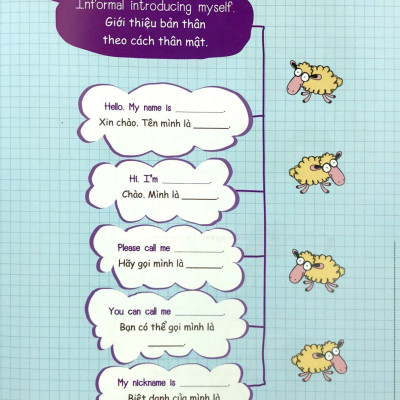 Informal introducing myself.
Giới thiệu bản thân
theo cách thân mật.
Hello. My name is ________.
Xin chào. Tên mình là _______.
Hi. I'm ________.
Chào. Mình là _______.
Please call me ________.
Hãy gọi mình là _______.
You can call me ________.
Bạn có thể gọi mình là
_______.
My nickname is ________.
Biệt danh của mình là